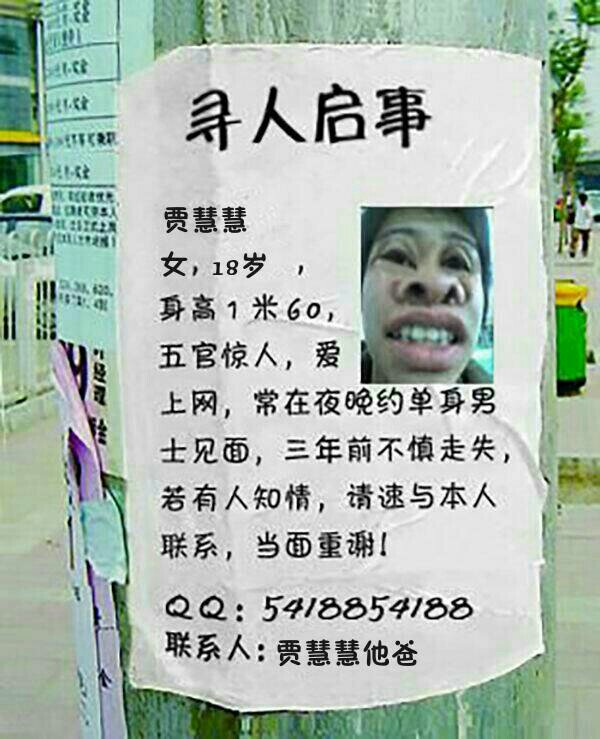 寻人启事
贾慧慧
女，18岁 ，
身高1米60，
五官惊人，爱
上网，常在夜晚约单身男
士见面，三年前不慎走失，
若有人知情，请速与本人
联系，当面重谢！
QQ：5418854188
联系人：贾慧慧他爸